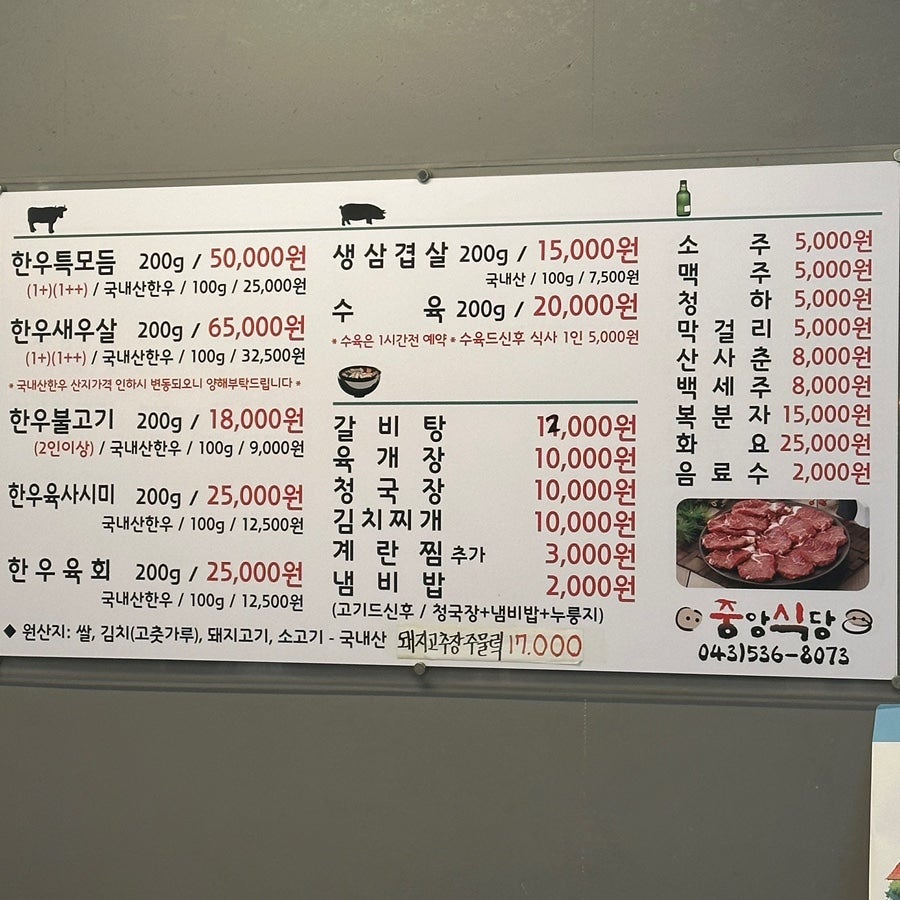 한우특모듬 200g / 50,000원
(1+)(1++) / 국내산한우 / 100g / 25,000원
한우새우살 200g / 65,000원
(1+)(1++) / 국내산한우 / 100g / 32,500원
* 국내산한우 산지가격 인하시 변동되오니 양해부탁드립니다 *
한우불고기 200g / 18,000원
(2인이상) / 국내산한우 / 100g / 9,000원
한우육사시미 200g / 25,000원
국내산한우 / 100g / 12,500원
한우육회 200g / 25,000원
국내산한우 / 100g / 12,500원
◆ 원산지: 쌀, 김치(고춧가루), 돼지고기, 소고기 - 국내산
생삼겹살 200g / 15,000원
국내산 / 100g / 7,500원
수육 200g / 20,000원
* 수육은 1시간전 예약 * 수육드신후 식사 1인 5,000원
갈비탕 12,000원
육개장 10,000원
청국장 10,000원
김치찌개 10,000원
계란찜 추가 3,000원
냄비밥 2,000원
(고기드신후 / 청국장+냄비밥+누룽지)
돼지고추장주물럭 17.000
소주 5,000원
맥주 5,000원
청하 5,000원
막걸리 5,000원
산사춘 8,000원
백세주 8,000원
복분자 15,000원
화요 25,000원
음료수 2,000원
중앙식당
043)536-8073